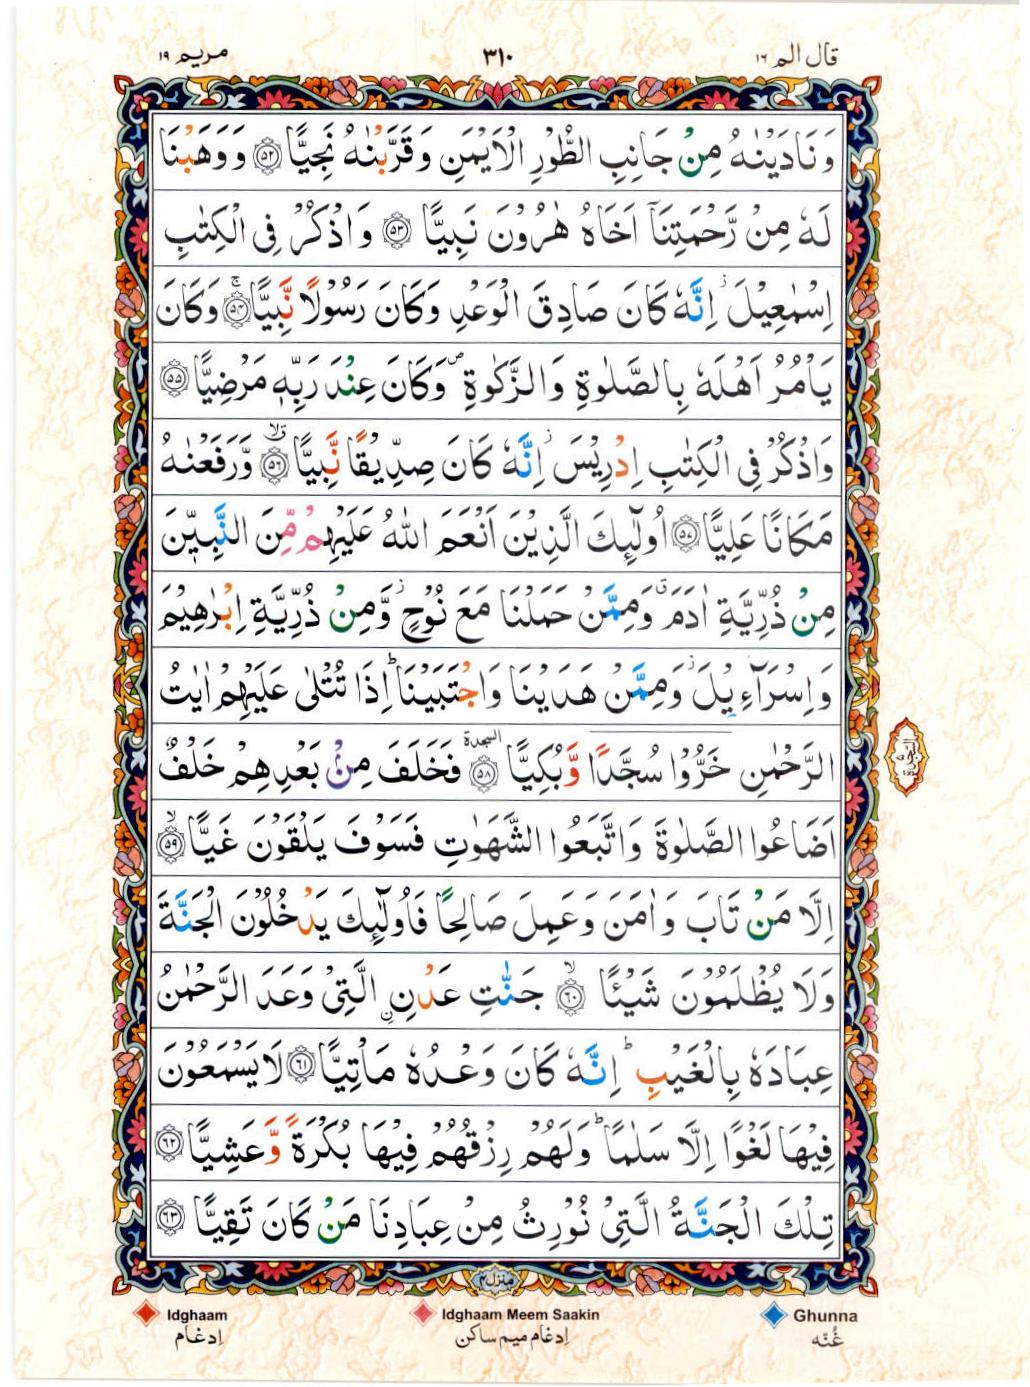 قال الم ١٦ ٣١٠ مريم ١٩
وَنَادَيْنٰهُ مِنْ جَانِبِ الطُّوْرِ الْاَيْمَنِ وَقَرَّبْنٰهُ نَجِيًّا ﴿٥٢﴾ وَوَهَبْنَا
لَهٗ مِنْ رَّحْمَتِنَآ اَخَاهُ هٰرُوْنَ نَبِيًّا ﴿٥٣﴾ وَاذْكُرْ فِى الْكِتٰبِ
اِسْمٰعِيْلَ ز اِنَّهٗ كَانَ صَادِقَ الْوَعْدِ وَكَانَ رَسُوْلًا نَّبِيًّا ۚ ﴿٥٤﴾ وَكَانَ
يَاْمُرُ اَهْلَهٗ بِالصَّلٰوةِ وَالزَّكٰوةِ ص وَكَانَ عِنْدَ رَبِّهٖ مَرْضِيًّا ﴿٥٥﴾
وَاذْكُرْ فِى الْكِتٰبِ اِدْرِيْسَ ز اِنَّهٗ كَانَ صِدِّيْقًا نَّبِيًّا ق لا ﴿٥٦﴾ وَّرَفَعْنٰهُ
مَكَانًا عَلِيًّا ﴿٥٧﴾ اُولٰٓئِكَ الَّذِيْنَ اَنْعَمَ اللّٰهُ عَلَيْهِمْ مِّنَ النَّبِيّٖنَ
مِنْ ذُرِّيَّةِ اٰدَمَ ق وَمِمَّنْ حَمَلْنَا مَعَ نُوْحٍ ز وَّمِنْ ذُرِّيَّةِ اِبْرٰهِيْمَ
وَاِسْرَآءِيْلَ ز وَمِمَّنْ هَدَيْنَا وَاجْتَبَيْنَا ط اِذَا تُتْلٰى عَلَيْهِمْ اٰيٰتُ
الرَّحْمٰنِ خَرُّوْا سُجَّدًا وَّبُكِيًّا السجدة ﴿٥٨﴾ فَخَلَفَ مِنْۢ بَعْدِهِمْ خَلْفٌ
السجدة ٥
اَضَاعُوا الصَّلٰوةَ وَاتَّبَعُوا الشَّهَوٰتِ فَسَوْفَ يَلْقَوْنَ غَيًّا ۙ ﴿٥٩﴾
اِلَّا مَنْ تَابَ وَاٰمَنَ وَعَمِلَ صَالِحًا فَاُولٰٓئِكَ يَدْخُلُوْنَ الْجَنَّةَ
وَلَا يُظْلَمُوْنَ شَيْـًٔا ۙ ﴿٦٠﴾ جَنّٰتِ عَدْنِ ن الَّتِىْ وَعَدَ الرَّحْمٰنُ
عِبَادَهٗ بِالْغَيْبِ ط اِنَّهٗ كَانَ وَعْدُهٗ مَاْتِيًّا ﴿٦١﴾ لَا يَسْمَعُوْنَ
فِيْهَا لَغْوًا اِلَّا سَلٰمًا ط وَلَهُمْ رِزْقُهُمْ فِيْهَا بُكْرَةً وَّعَشِيًّا ﴿٦٢﴾
تِلْكَ الْجَنَّةُ الَّتِىْ نُوْرِثُ مِنْ عِبَادِنَا مَنْ كَانَ تَقِيًّا ﴿٦٣﴾
منزل ٤
Idghaam Idghaam Meem Saakin Ghunna
اِدغام اِدغام ميم ساكن غُنّه